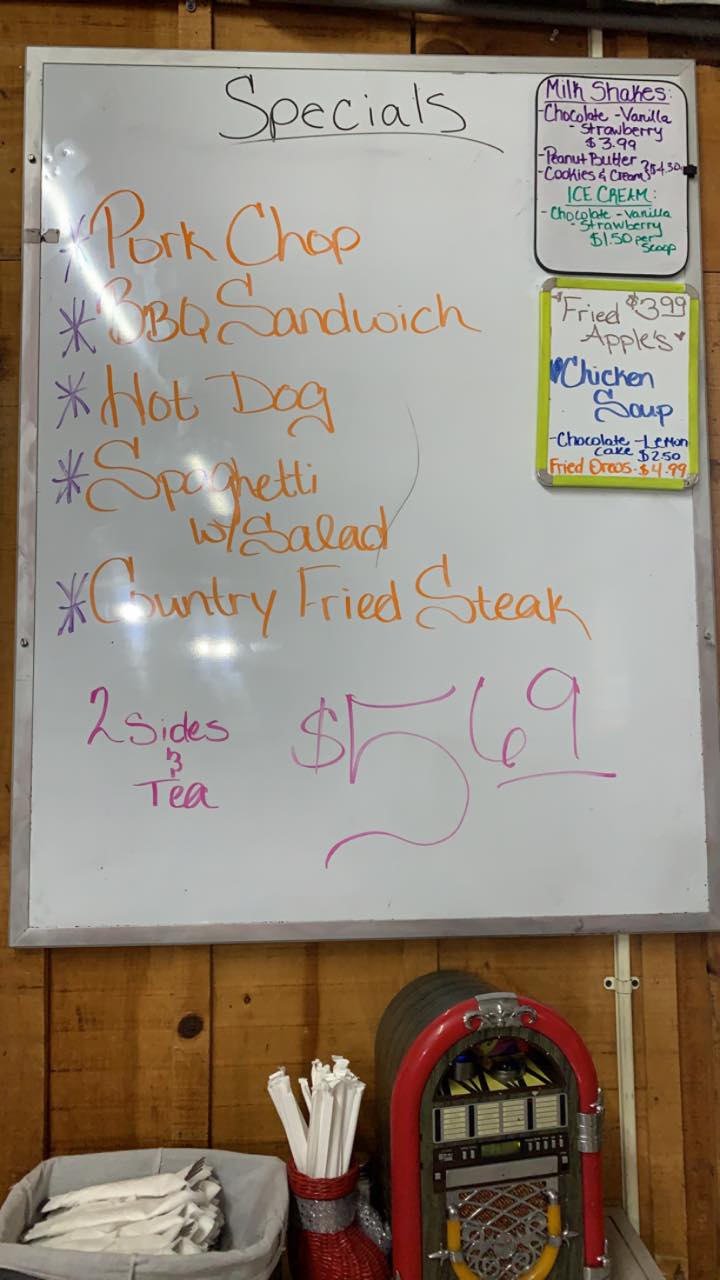 Specials
* Pork Chop
* BBQ Sandwich
* Hot Dog
* Spaghetti
w/Salad
* Country Fried Steak
2 Sides
&
Tea
$5.69
Milk Shakes:
-Chocolate -Vanilla
-Strawberry
$3.99
-Peanut Butter
-Cookies & Cream} $4.50
ICE CREAM:
-Chocolate -Vanilla
-Strawberry
$1.50 per
scoop
"Fried $3.99
Apple's"
Chicken
Soup
-Chocolate -Lemon
cake $2.50
Fried Oreos-$4.99